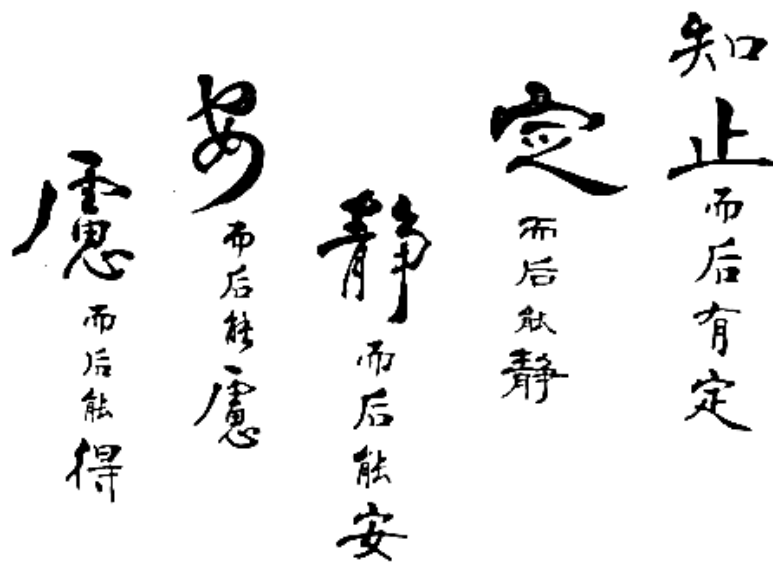 知止而后有定
定而后能靜
靜而后能安
安而后能慮
慮而后能得